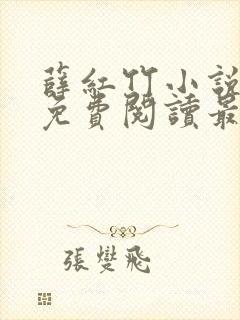 薛紅竹小說
免費閱讀最
張燮飛